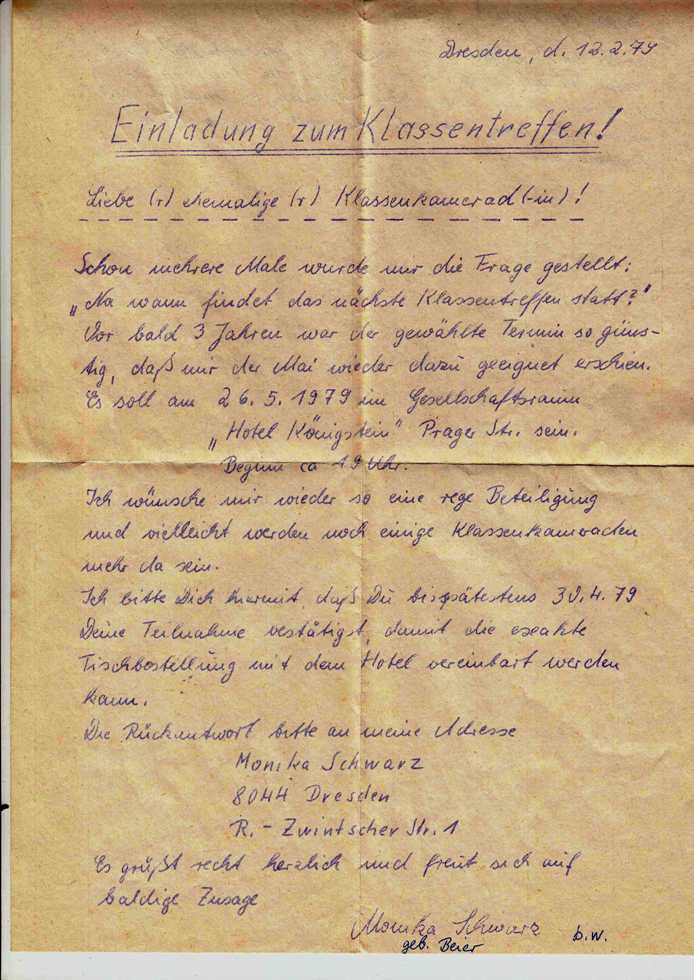 Dresden, d. 12.2.79
Einladung zum Klassentreffen!
Liebe (r) ehemalige (r) Klassenkamerad (-in)!
Schon mehrere Male wurde mir die Frage gestellt:
„Na wann findet das nächste Klassentreffen statt?"
Vor bald 3 Jahren war der gewählte Termin so güns-
tig, daß mir der Mai wieder dazu geeignet erschien.
Es soll am 26.5.1979 im Gesellschaftsraum
„Hotel Königstein" Prager Str. sein.
Beginn ca 19 Uhr.
Ich wünsche mir wieder so eine rege Beteiligung
und vielleicht werden noch einige Klassenkameraden
mehr da sein.
Ich bitte Dich hiermit, daß Du bis spätestens 30.4.79
Deine Teilnahme bestätigst, damit die exakte
Tischbestellung mit dem Hotel vereinbart werden
kann.
Die Rückantwort bitte an meine Adresse
Monika Schwarz
8044 Dresden
R.- Zwintscher Str. 1
Es grüßt recht herzlich und freut sich auf
baldige Zusage
Monika Schwarz
geb. Beier b.w.